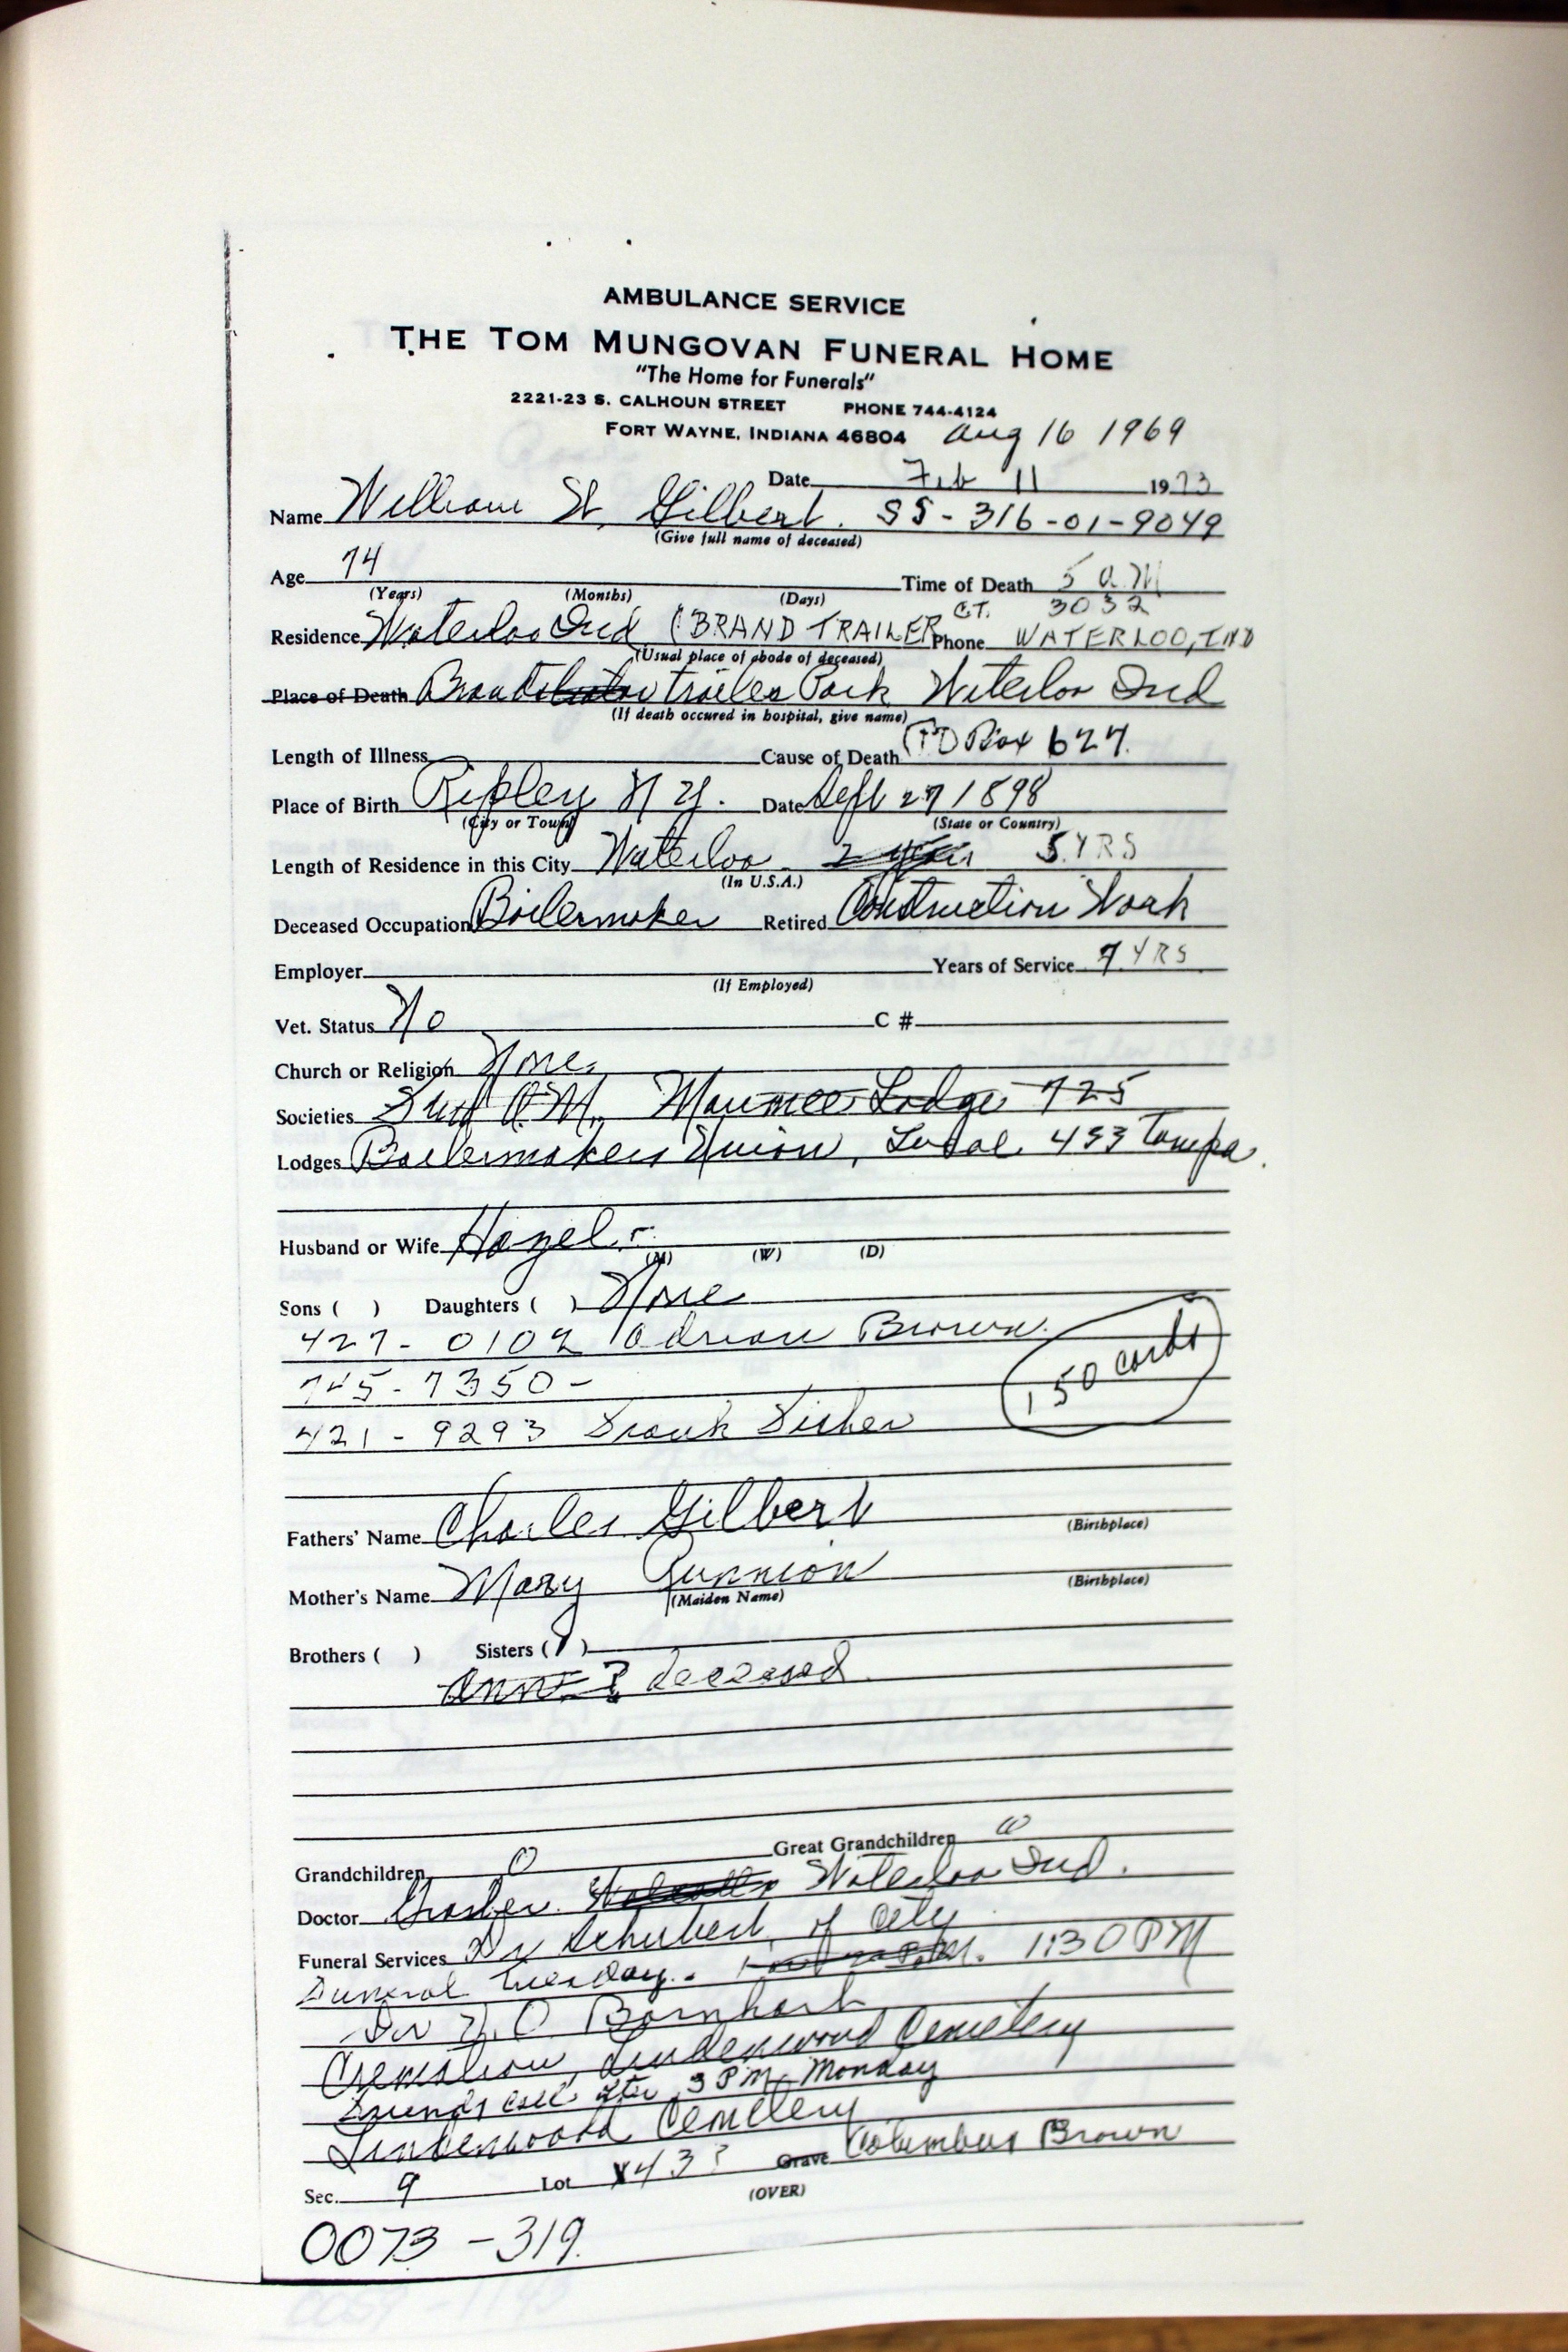 AMBULANCE SERVICE
THE TOM MUNGOVAN FUNERAL HOME
"The Home for Funerals"
2221-23 S. CALHOUN STREET PHONE 744-4124
FORT WAYNE, INDIANA 46804 Aug 16 1969
Date Feb 11 1973
Name William H. Gilbert. SS-316-01-9049
(Give full name of deceased)
Age 74 Time of Death 5 A.M
(Years) (Months) (Days)
CT. 3032
Residence Waterloo Ind (BRAND TRAILER Phone WATERLOO, IND
(Usual place of abode of deceased)
Place of Death Trailer Park Waterloo Ind
(If death occured in hospital, give name)
Length of Illness Cause of Death P O Box 627.
Place of Birth Ripley N Y. Date Sept 27 1898
(City or Town) (State or Country)
Length of Residence in this City Waterloo 5 YRS
(In U.S.A.)
Deceased Occupation Boilermaker Retired Construction Work
Employer Years of Service 7 YRS
(If Employed)
Vet. Status No C #
Church or Religion None
Societies Maumee Lodge 725
Lodges Boilermakers Union, Local 433 Tampa.
Husband or Wife Hazel
(M) (W) (D)
Sons ( ) Daughters ( ) None
427-0102 Adrian Brown
745-7350-
150 cards
421-9293 Frank Fisher
Fathers' Name Charles Gilbert (Birthplace)
Mother's Name Mary Gunnion (Birthplace)
(Maiden Name)
Brothers ( ) Sisters (1)
Ann ? deceased
Grandchildren 0 Great Grandchildren 0
Doctor Waterloo Ind.
Funeral Services Dr Schubert of City
Funeral Tuesday. 1:30 PM
Barnhart
Cremation, Lindenwood Cemetery
Friends call after 3 PM, Monday
Lindenwood Cemetery
Sec. 9 Lot X43? Grave Columbus Brown
(OVER)
0073-319.